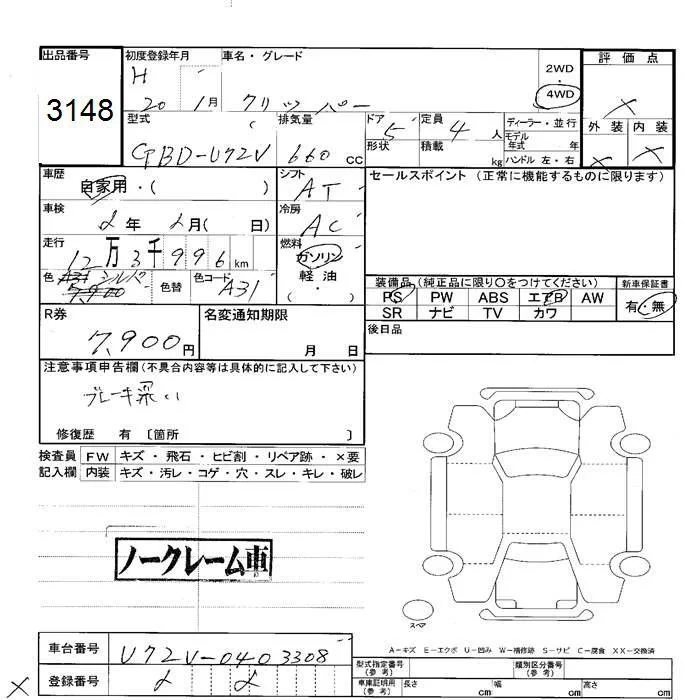 出品番号
3148
初度登録年月
H
20 1月
車名・グレード
クリッパー
2WD
・
4WD
評価点
×
外装 内装
× ×
型式
GBD-U72V
排気量
660 CC
ドア 5
形状
定員 4 人
積載 kg
ディーラー・並行
モデル
年式 年
ハンドル 左・右
車歴
自家用・( )
シフト
AT
セールスポイント (正常に機能するものに限ります)
車検
2年 2月( 日)
冷房
AC
走行
12万3千996km
燃料
ガソリン
軽油
( ・ )
色 A31 シルバ
7,900
色替
色コード
A31
装備品 (純正品に限り○をつけてください)
PS PW ABS エアB AW
SR ナビ TV カワ
新車保証書
有・無
R券
7,900円
名変通知期限
月 日
後日品
注意事項申告欄(不具合内容等は具体的に記入して下さい)
ブレーキ深い
修復歴 有 〔箇所 〕
検査員 FW キズ・飛石・ヒビ割・リペア跡・×要
記入欄 内装 キズ・汚レ・コゲ・穴・スレ・キレ・破レ
ノークレーム車
スペア
A-キズ E-エクボ U-凹み W-補修跡 S-サビ C-腐食 XX-交換済
車台番号 U72V-0403308
登録番号
×
型式指定番号
(参考)
類別区分番号
(参考)
車庫証明用
(参考)
長さ cm 幅 cm 高さ cm